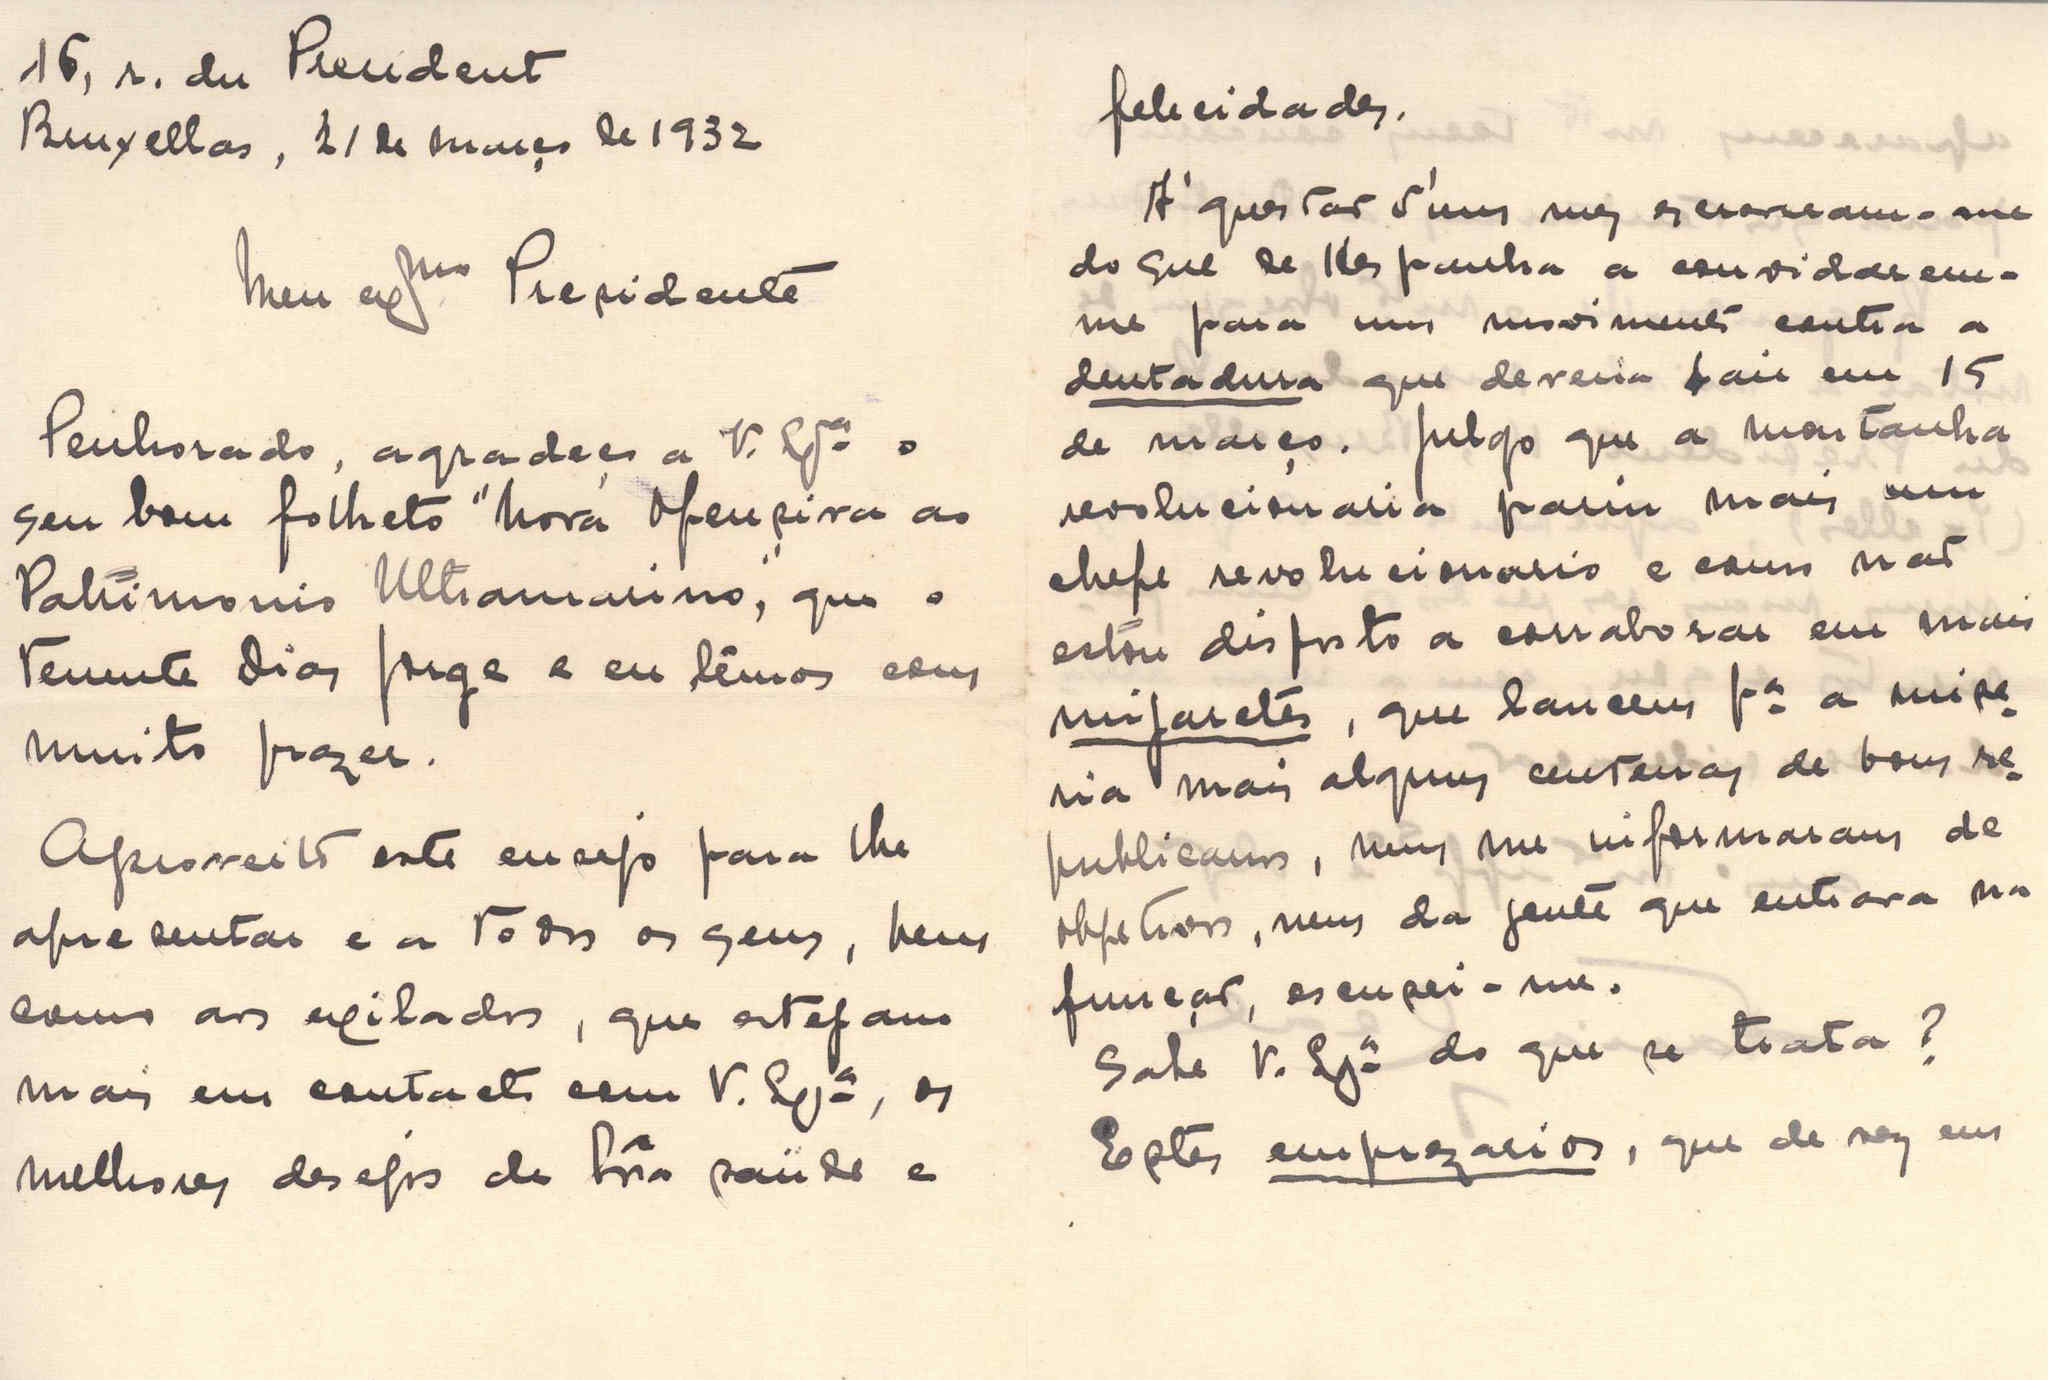 16, r. du President
Bruxellas, 21 de março de 1932
Meu exmo Presidente
Penhorado, agradeço a V. Exª o
seu bom folheto "Nova Ofensiva ao
Patrimonio Ultramarino", que o
Tenente Dias Jorge e eu lêmos com
muito prazer.
Aproveito este ensejo para lhe
apresentar e a todos os seus, bem
como aos exilados, que estejam
mais em contacto com V. Exª, os
melhores desejos de bôa saúde e
felicidades.
A' questão d'um mez escreveram-me
do que de Hespanha a convidarem-
me para um movimento contra a
dentadura que deveria sair em 15
de março. Julgo que a montanha
revolucionaria pariu mais um
chefe revolucionario e como não
estou disposto a collaborar em mais
mijaretes, que lancem pª a mise-
ria mais algumas centenas de bons re-
publicanos, nem me informaram de
objetivos, nem da gente que entrava na
função, escusei-me.
Sabe V. Exª do que se trata?
Estes emprezarios, que de vez em